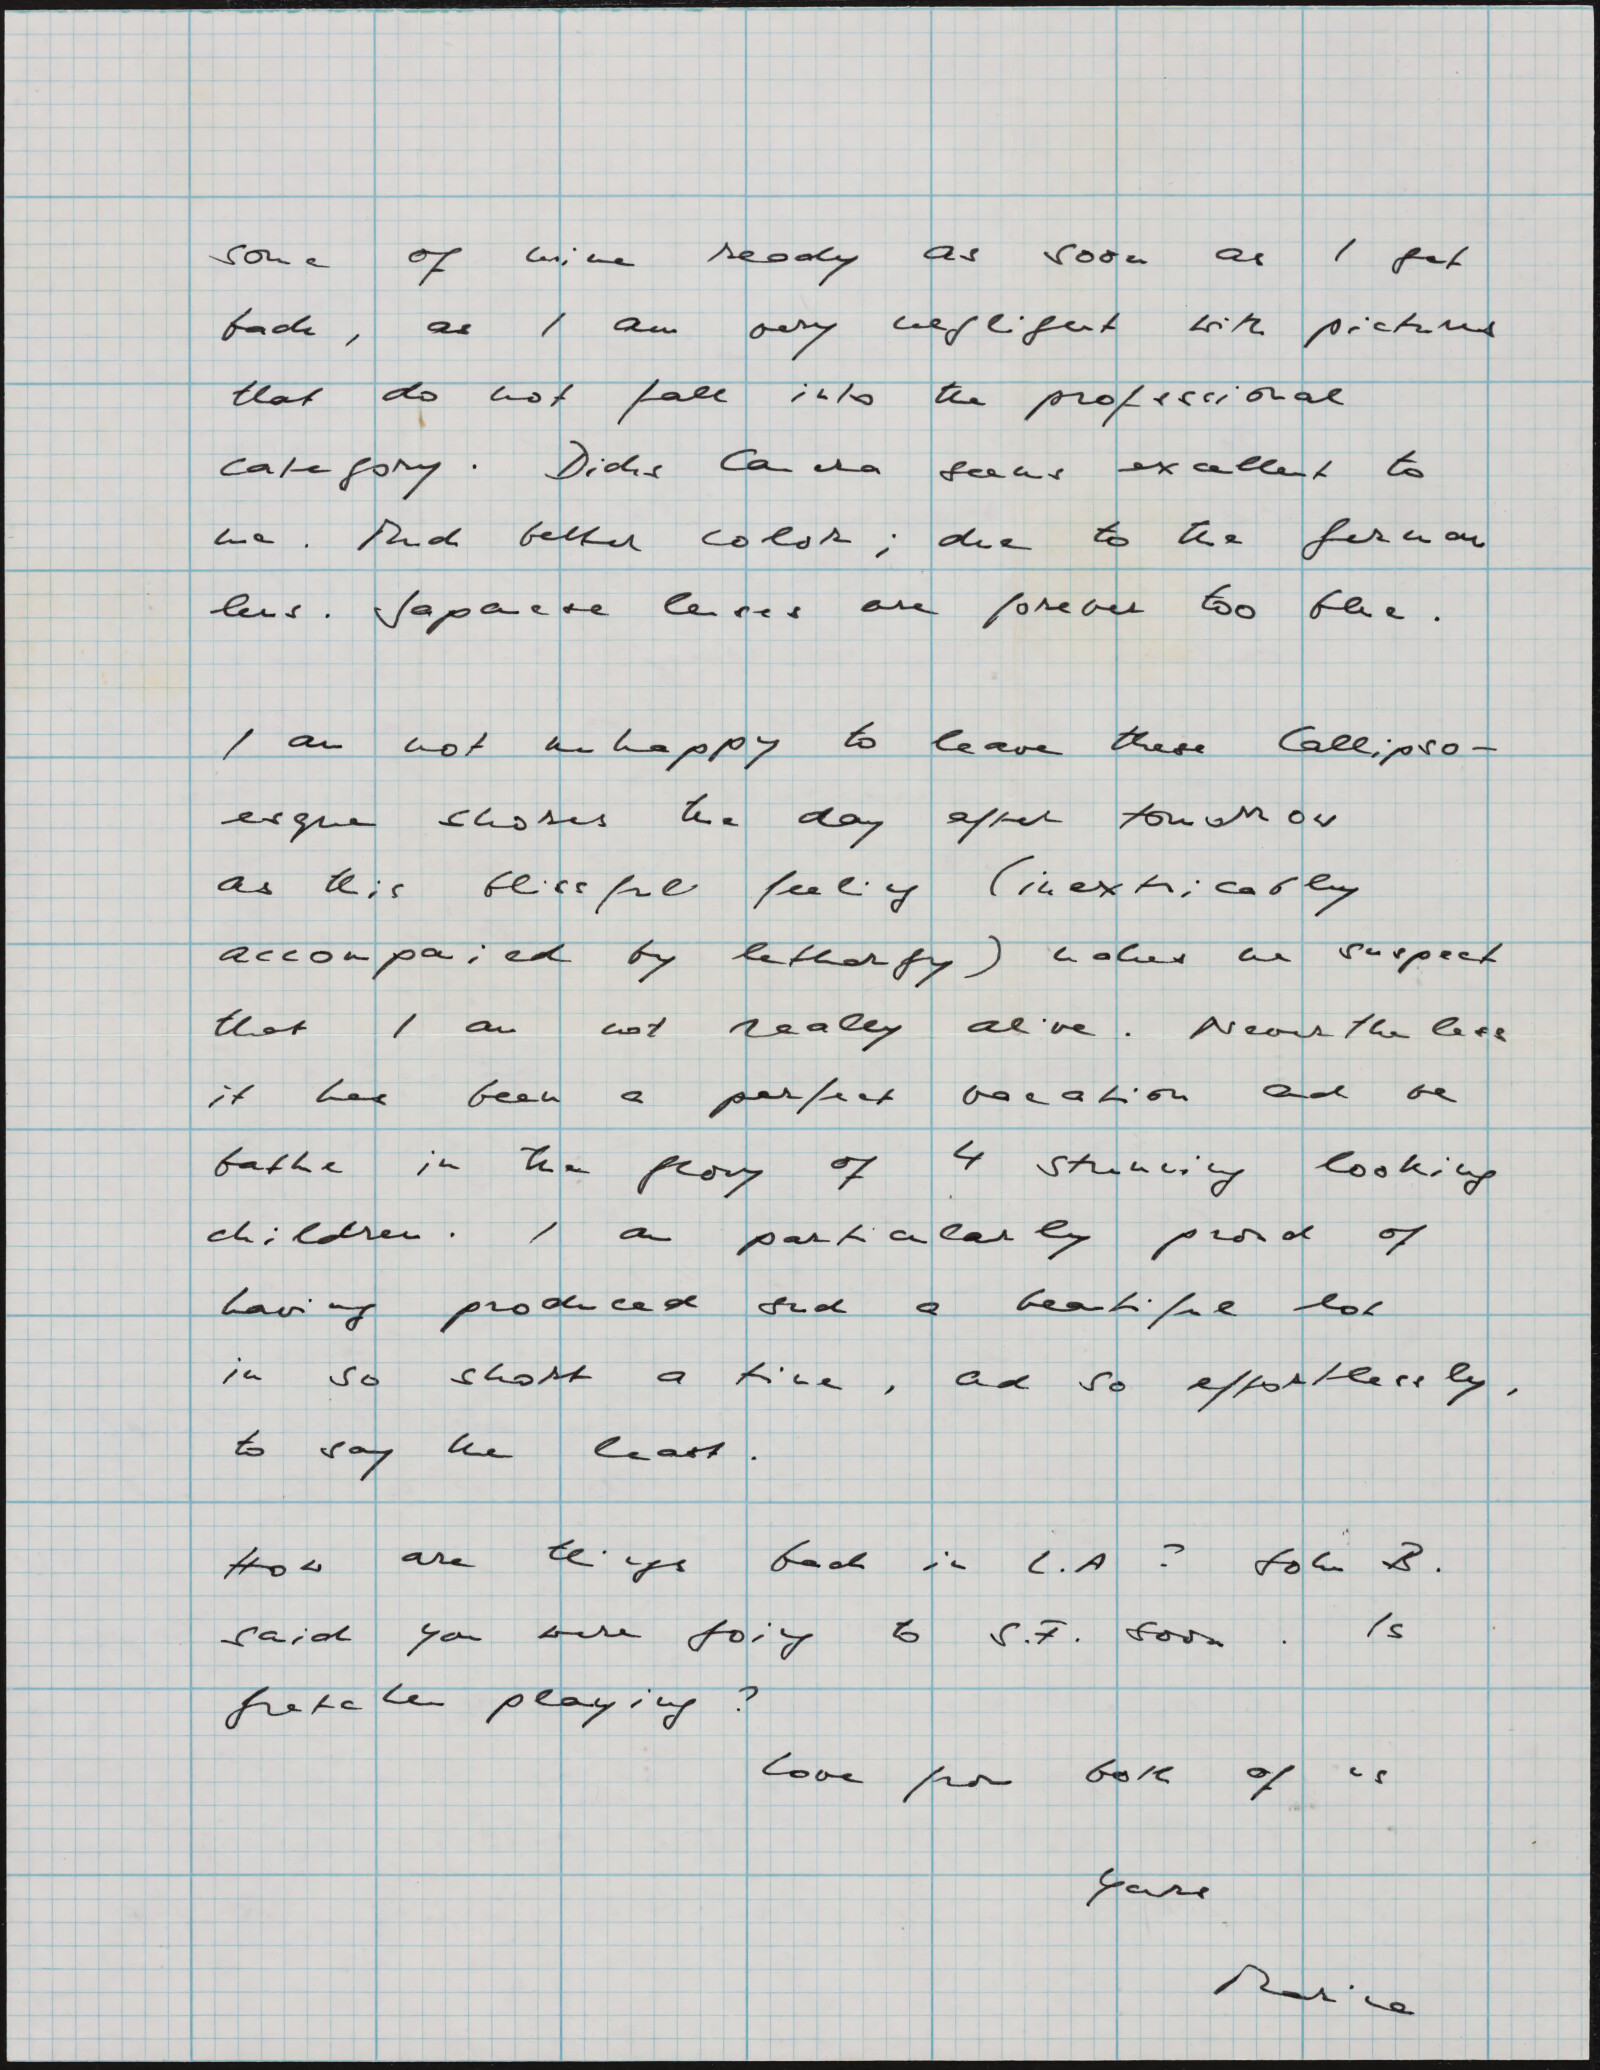 some of mine ready as soon as I get
back, as I am very negligent with pictures
that do not fall into the professional
category. Dicks Camera seems excellent to
me. Much better color; due to the german
lens. Japanese lenses are forever too blue.
I am not unhappy to leave these Callipso-
esque shores the day after tomorrow
as this blissful feeling (inextricably
accompanied by lethargy) makes me suspect
that I am not really alive. Nevertheless
it has been a perfect vacation and we
bathe in the glory of 4 stunning looking
children. I am particularly proud of
having produced such a beautiful lot
in so short a time, and so effortlessly,
to say the least.
How are things back in L.A? John B.
said you were going to S.F. soon. Is
Gretchen playing?
Love from both of us
Yours
Marina